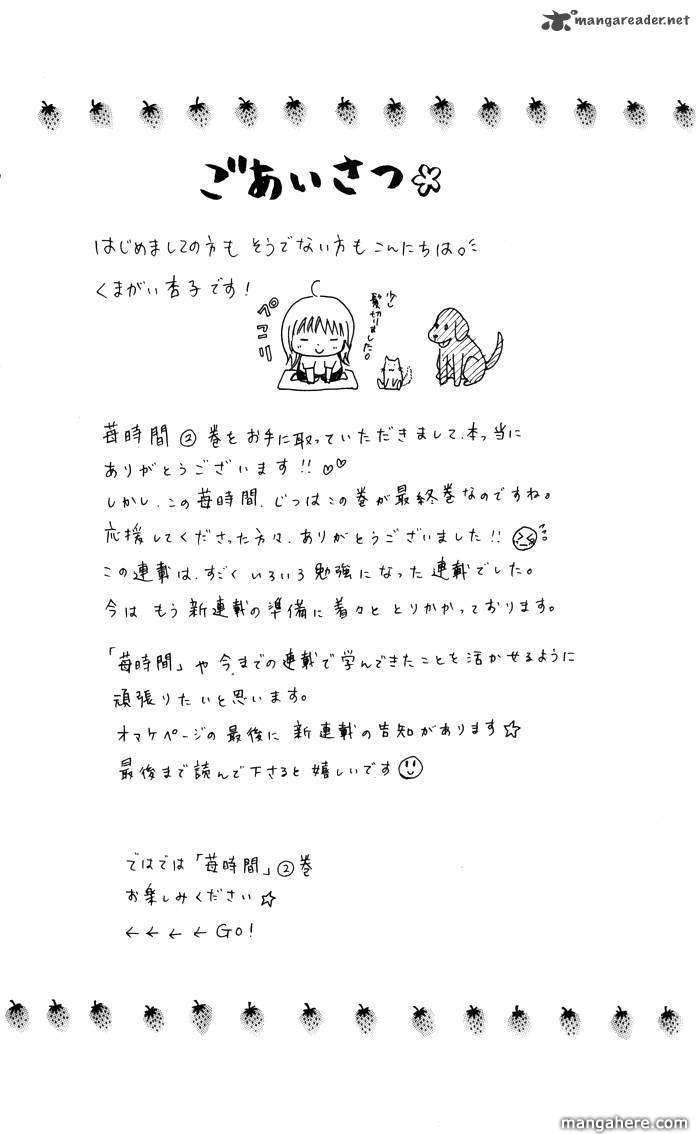 mangareader.net
ごあいさつ
はじめましての方も そうでない方も こんにちは。
くまがい杏子です!
ペコリ
少し
髪切りました。
苺時間②巻をお手に取っていただきまして、本っ当に
ありがとうございます!!♡♡
しかし、この苺時間、じつはこの巻が最終巻なのですね。
応援してくださった方々、ありがとうございました!!
この連載は、すごくいろいろ勉強になった連載でした。
今は もう新連載の準備に着々ととりかかっております。
「苺時間」や今までの連載で学んできたことを活かせるように
頑張りたいと思います。
オマケページの最後に 新連載の告知があります☆
最後まで読んで下さると嬉しいです
ではでは「苺時間」②巻
お楽しみください☆
←←←←GO!
mangahere.com